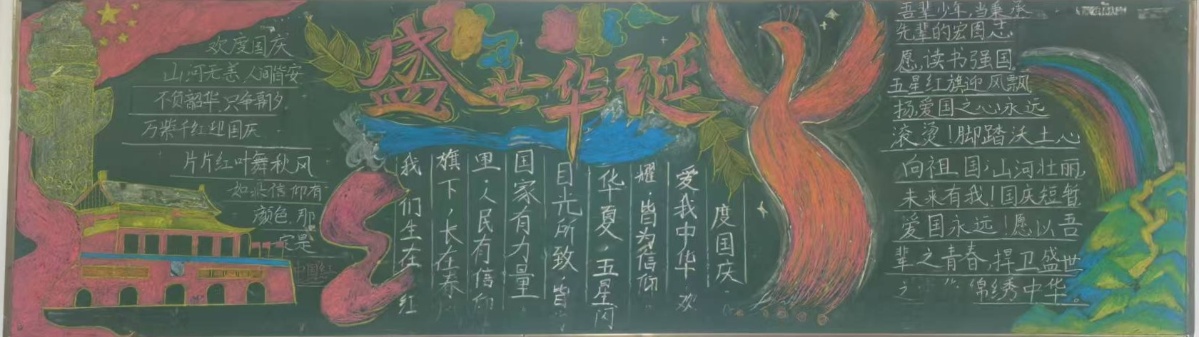 盛世华诞
欢度国庆
山河无恙 人间皆安
不负韶华 只争朝夕
万紫千红迎国庆
片片红叶舞秋风
如此信仰有
颜色, 那
一定是
中国红
我们生在红
旗下, 长在春
里, 人民有信仰
国家有力量
目光所致 皆为
华夏, 五星闪
耀 皆为信仰
爱我中华 欢
度国庆
吾辈少年, 当秉承
先辈的宏图志
愿, 读书强国
五星红旗迎风飘
扬, 爱国之心永远
滚烫! 脚踏沃土心
向祖国, 山河壮丽
未来有我! 国庆短暂
爱国永远! 愿以吾
辈之青春, 捍卫盛世
之 锦绣中华。